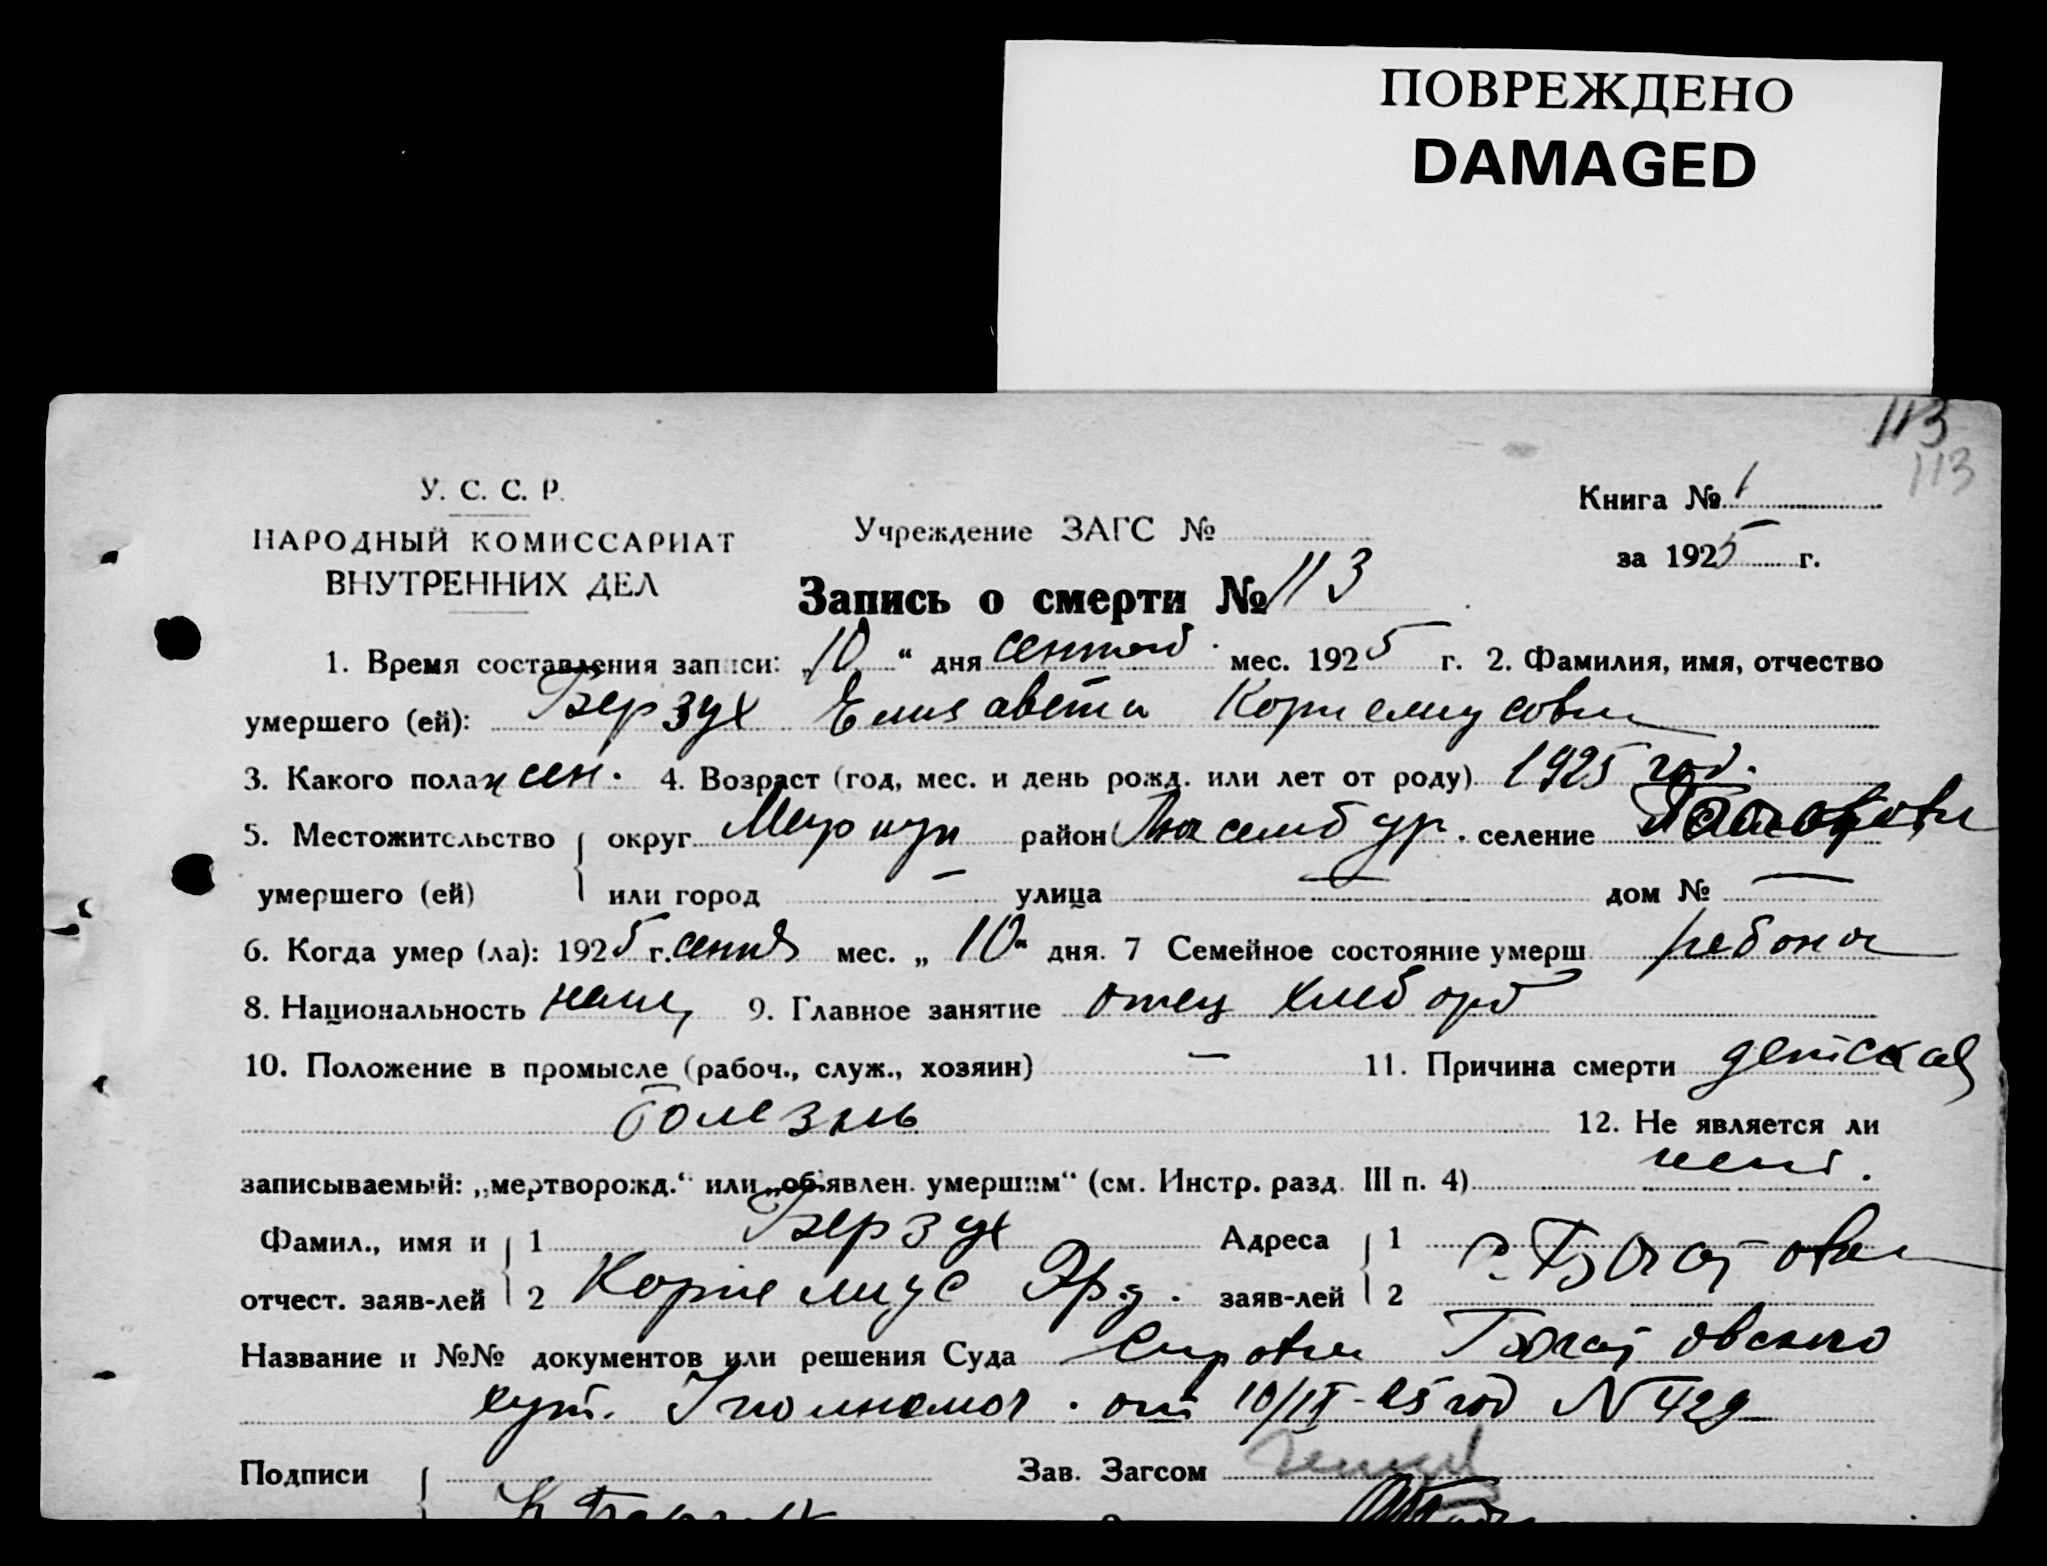 ПОВРЕЖДЕНО
DAMAGED
113
113
У. С. С. Р.
НАРОДНЫЙ КОМИССАРИАТ
ВНУТРЕННИХ ДЕЛ
Учреждение ЗАГС №
Книга № 1
за 1925 г.
Запись о смерти № 113
1. Время составления записи: „10“ дня сентяб. мес. 1925 г. 2. Фамилия, имя, отчество
умершего (ей): Берзух Елизавета Корнелиусовна
3. Какого пола жен. 4. Возраст (год, мес. и день рожд. или лет от роду) 1925 год.
5. Местожительство округ Мариуп район Люксембур. селение
умершего (ей) или город — улица — дом № —
6. Когда умер (ла): 1925 г. сентяб мес. „10“ дня. 7 Семейное состояние умерш. ребенок
8. Национальность немц 9. Главное занятие отец хлебороб
10. Положение в промысле (рабоч., служ., хозяин) — 11. Причина смерти детская
болезнь 12. Не является ли
записываемый: „мертворожд.“ или „об'явлен. умершим“ (см. Инстр. разд. III п. 4) нет.
Фамил., имя и 1 Берзух Адреса 1
отчест. заяв-лей 2 Корнелиус заяв-лей 2
Название и №№ документов или решения Суда Справка
хут. Уполномоч. от 10/IX-25 год N 429
Подписи Зав. Загсом